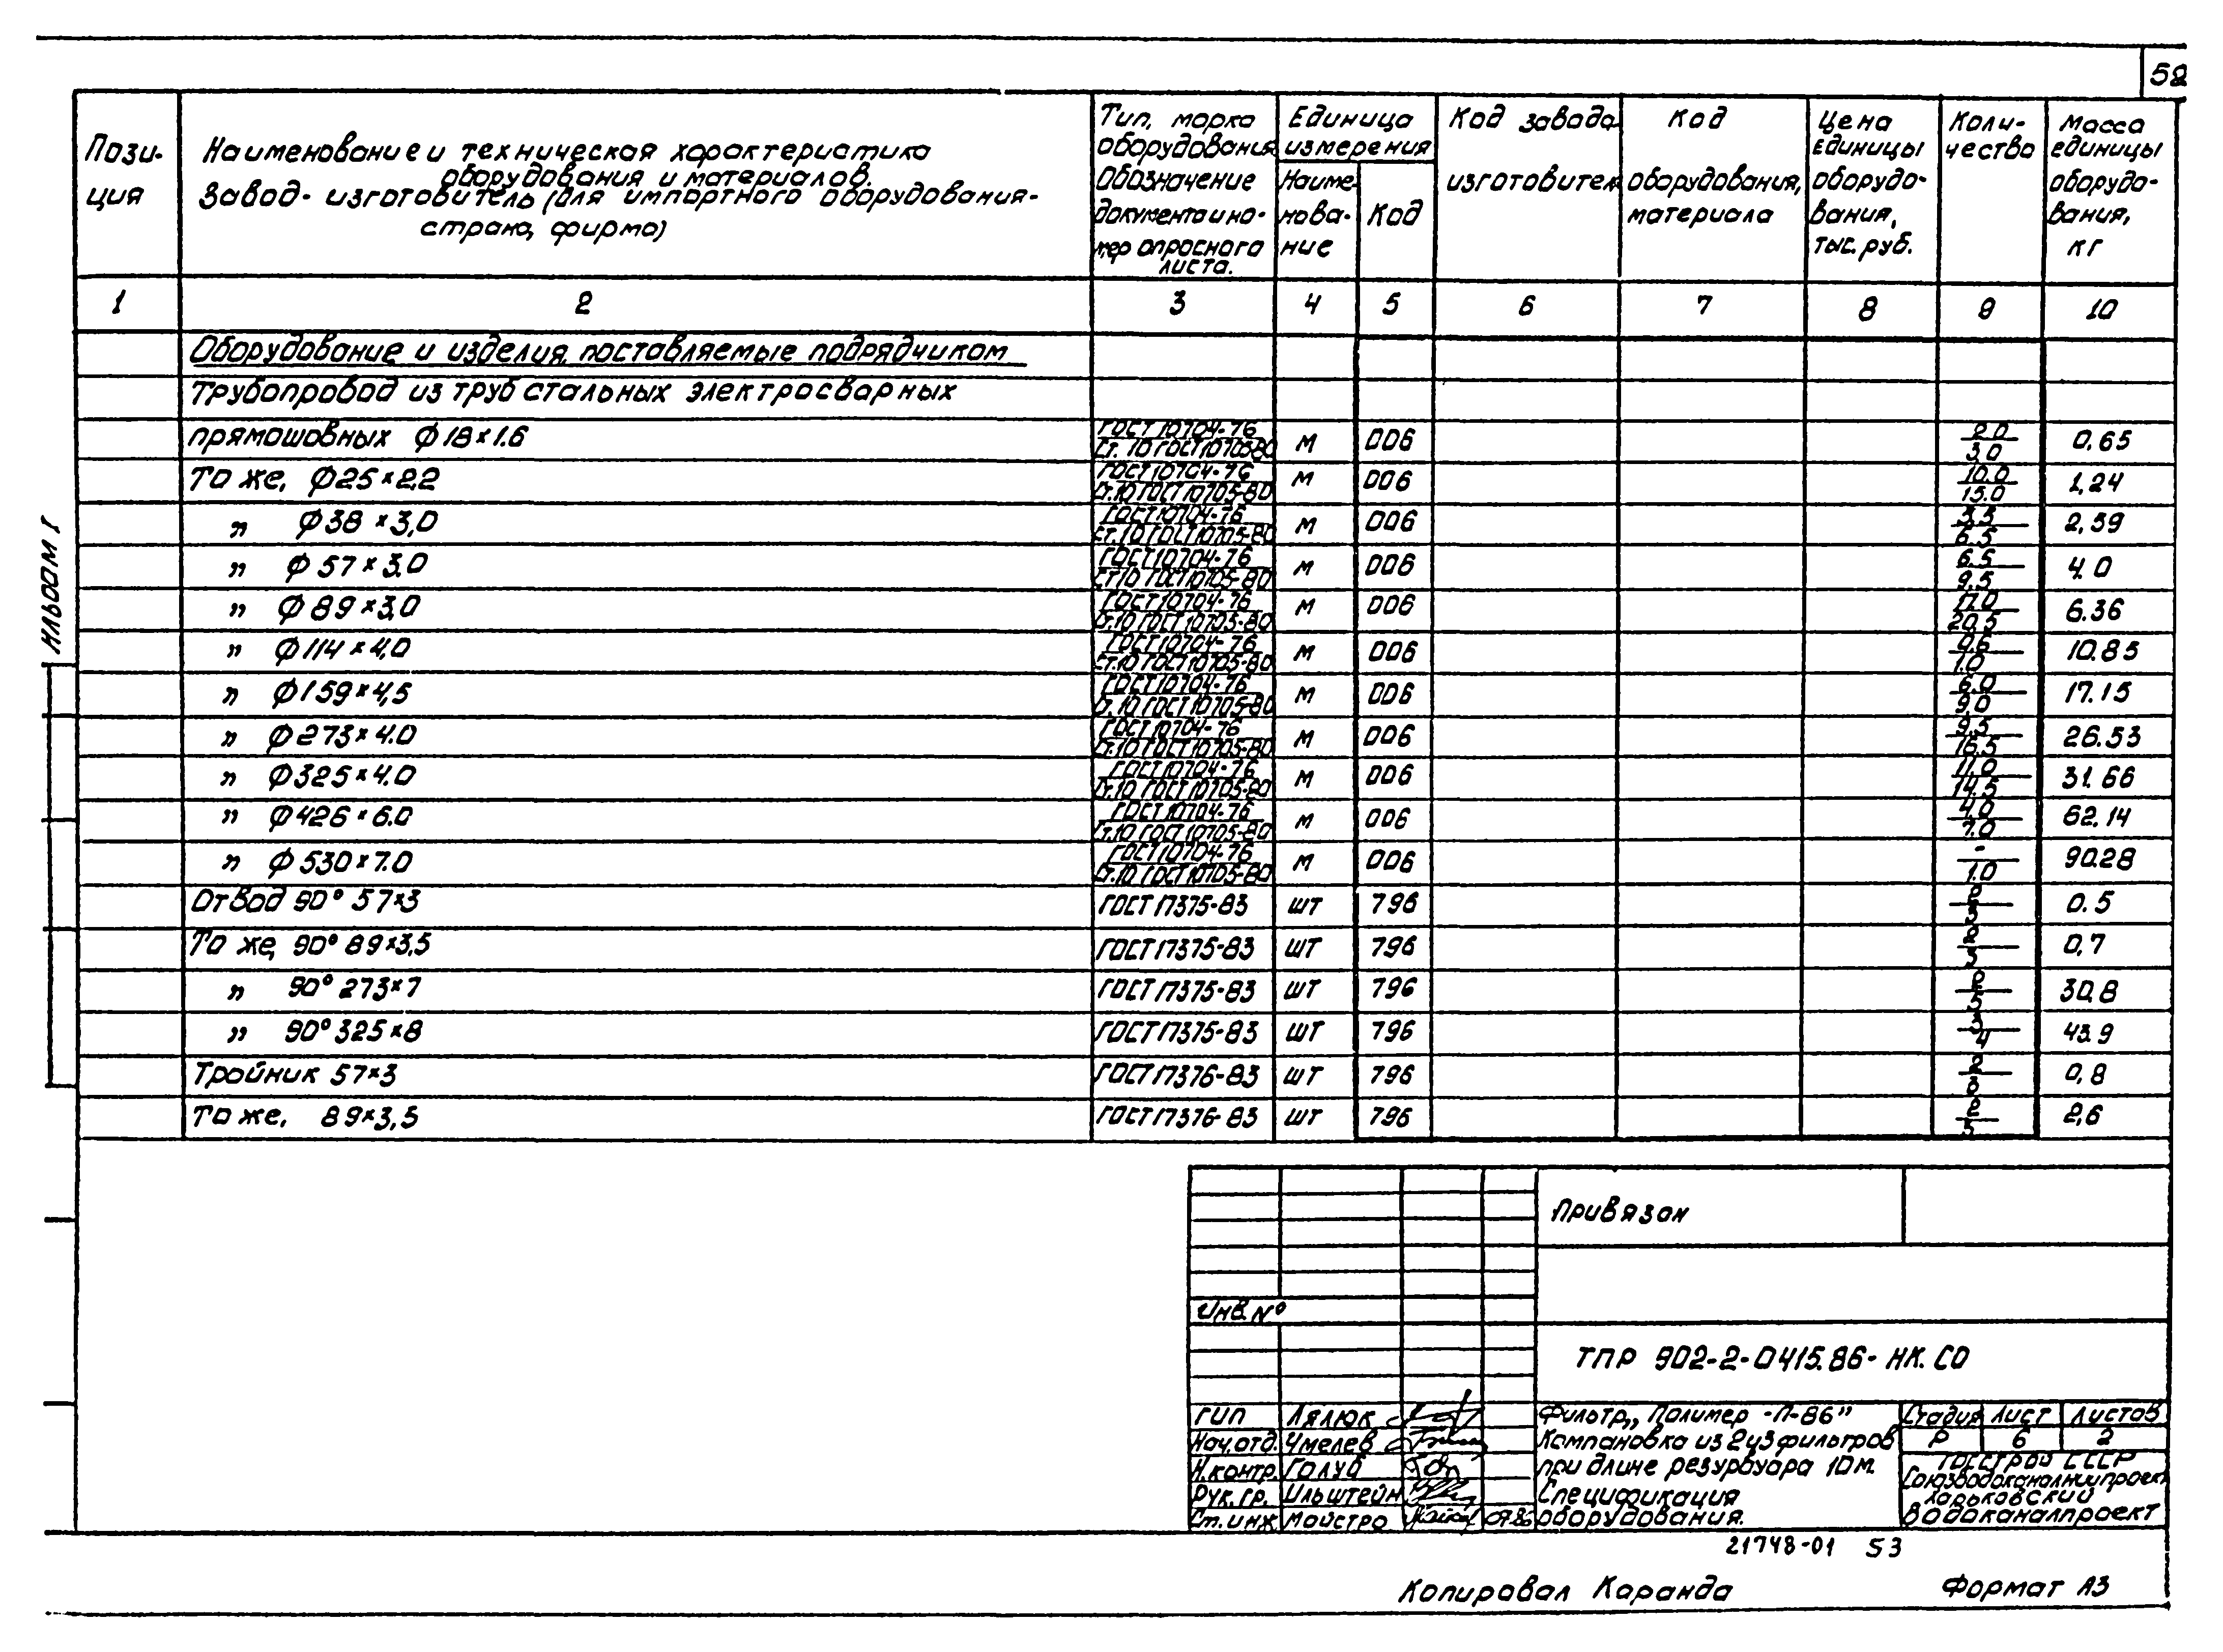 52
Пози-
ция
Наименование и техническая характеристика
оборудования и материалов.
Завод-изготовитель (для импортного оборудования-
страна, фирма)
Тип, марка
оборудования
Обозначение
документа и но-
мер опросного
листа.
Единица
измерения
Наиме-
нова-
ние
Код
Код завода
изготовителя
Код
оборудования,
материала
Цена
единицы
оборудо-
вания,
тыс. руб.
Коли-
чество
Масса
единицы
оборудо-
вания,
кг
1 2 3 4 5 6 7 8 9 10
Оборудование и изделия, поставляемые подрядчиком
Трубопровод из труб стальных электросварных
прямошовных ф18×1.6 ГОСТ 10704-76 / Ст. 10 ГОСТ 10705-80 м 006 2.0/3.0 0,65
То же, ф25×2,2 ГОСТ 10704-76 / Ст.10 ГОСТ 10705-80 м 006 10.0/15.0 1,24
" ф38×3,0 ГОСТ 10704-76 / Ст.10 ГОСТ 10705-80 м 006 3.5/6.5 2,59
" ф57×3.0 ГОСТ 10704-76 / Ст.10 ГОСТ 10705-80 м 006 6.5/9.5 4.0
" ф89×3,0 ГОСТ 10704-76 / Ст.10 ГОСТ 10705-80 м 006 17.0/20.5 6.36
" ф114×4,0 ГОСТ 10704-76 / Ст.10 ГОСТ 10705-80 м 006 0.6/1.0 10.85
" ф159×4,5 ГОСТ 10704-76 / Ст.10 ГОСТ 10705-80 м 006 6.0/9.0 17.15
" ф273×4.0 ГОСТ 10704-76 / Ст.10 ГОСТ 10705-80 м 006 9,5/16.5 26.53
" ф325×4.0 ГОСТ 10704-76 / Ст.10 ГОСТ 10705-80 м 006 11.0/14.5 31.66
" ф426×6.0 ГОСТ 10704-76 / Ст.10 ГОСТ 10705-80 м 006 4.0/7.0 62.14
" ф530×7.0 ГОСТ 10704-76 / Ст.10 ГОСТ 10705-80 м 006 -/1.0 90.28
Отвод 90° 57×3 ГОСТ 17375-83 шт 796 2/3 0.5
То же, 90° 89×3,5 ГОСТ 17375-83 шт 796 0,7
" 90° 273×7 ГОСТ 17375-83 шт 796 30.8
" 90° 325×8 ГОСТ 17375-83 шт 796 3/4 43.9
Тройник 57×3 ГОСТ 17376-83 шт 796 2/3 0,8
То же, 89×3,5 ГОСТ 17376-83 шт 796 2/5 2,6
Альбом I
Привязан
Инв. №
ТПР 902-2-0415.86-НК.СО
ГИП Лялюк
Нач.отд. Чмелев
Н.контр. Голуб
Рук.гр. Ильштейн
Ст.инж Майстро 09.86
Фильтр „Полимер-П-86"
Компановка из 2 и 3 фильтров
при длине резурвуара 10м.
Спецификация
оборудования.
Стадия Лист Листов
Р 6 2
Госстрой СССР
Союзводоканалниипроект
Харьковский
Водоканалпроект
21748-01 53
Копировал Каранда
Формат А3